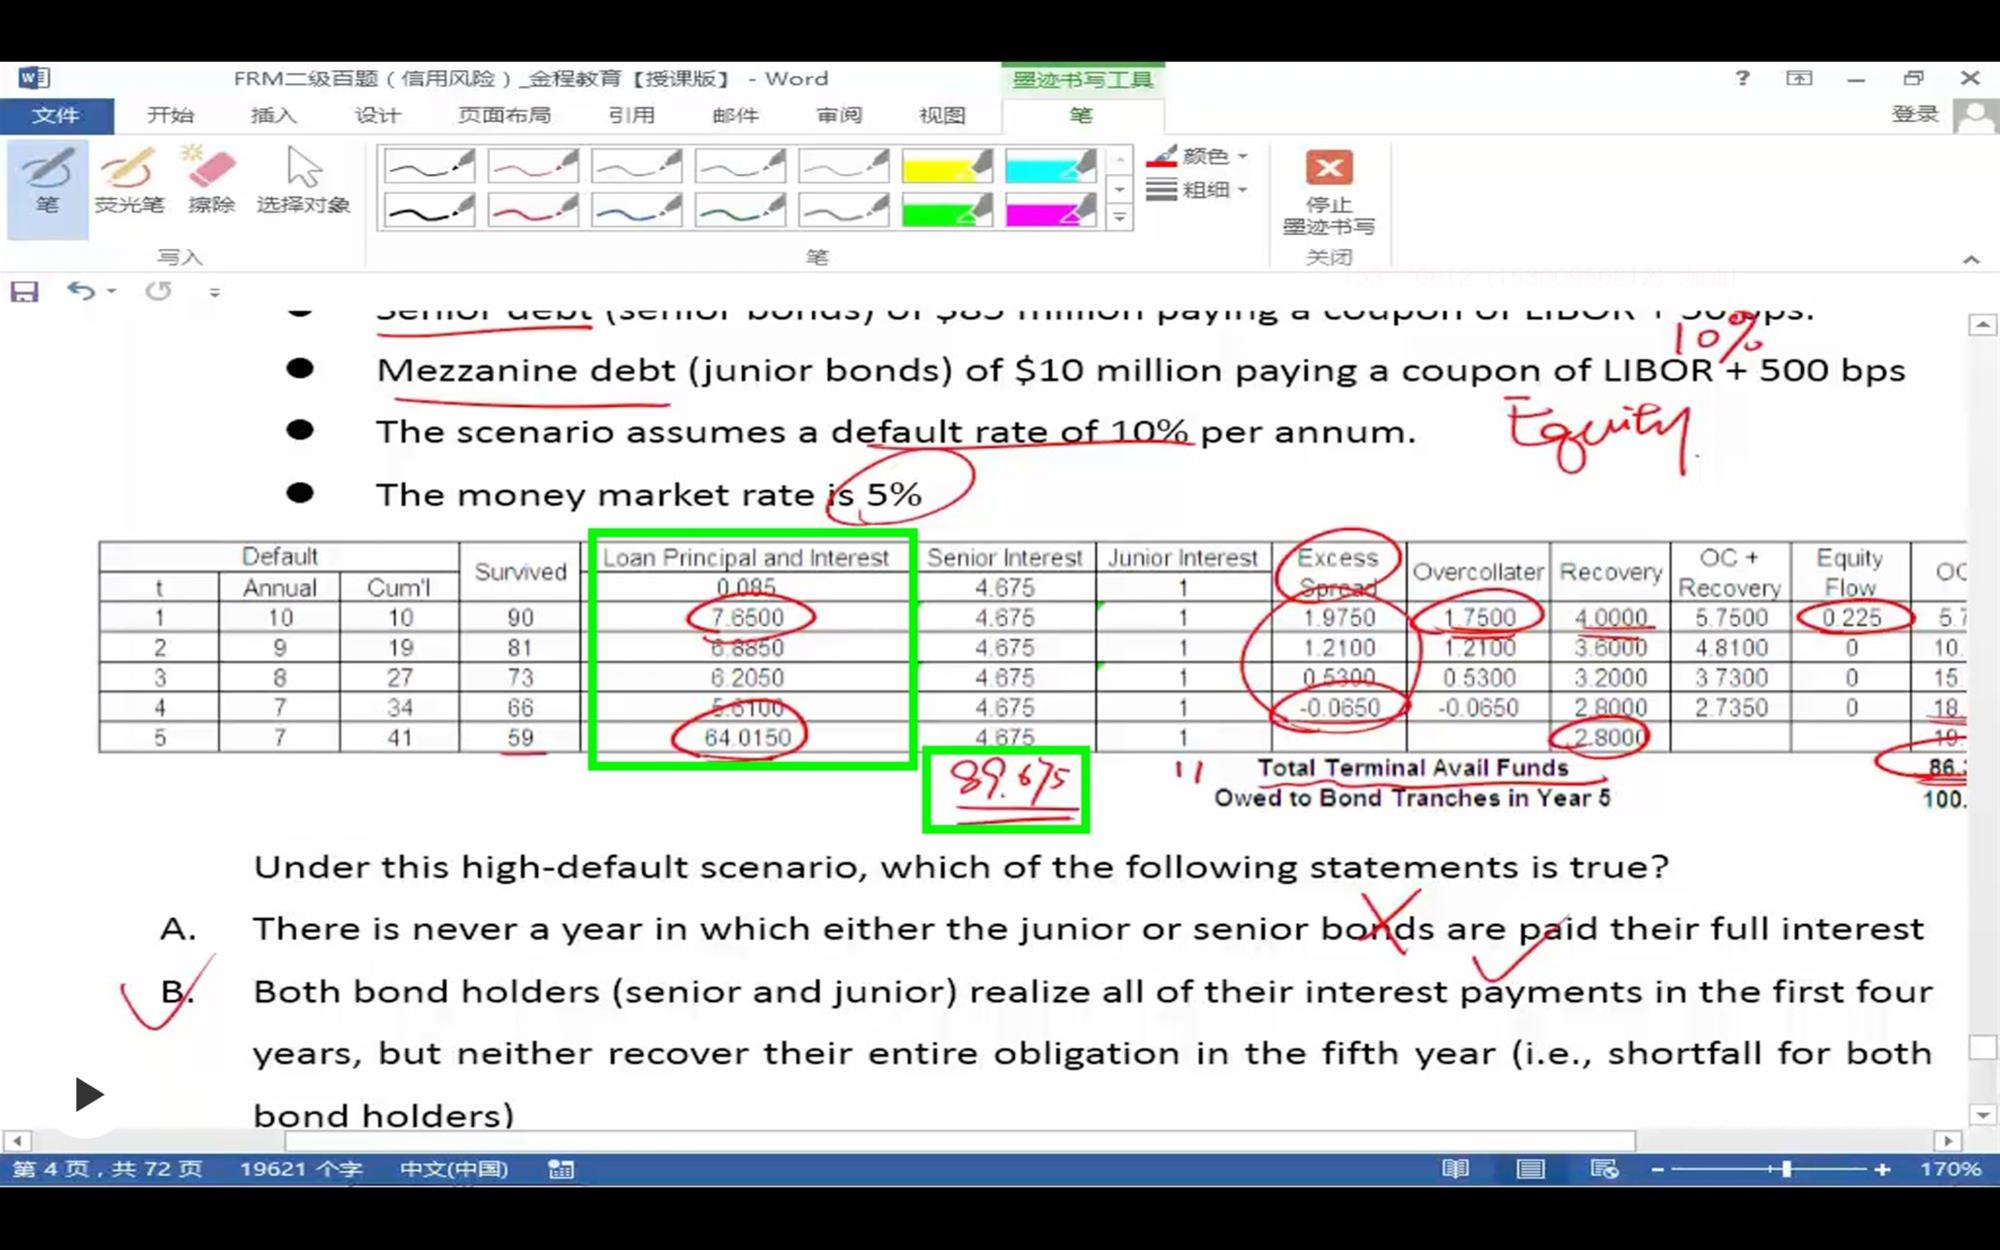 FRM二级百题（信用风险）_金程教育【授课版】 - Word
墨迹书写工具
?
文件 开始 插入 设计 页面布局 引用 邮件 审阅 视图 笔 登录
笔 荧光笔 擦除 选择对象 颜色 粗细 停止
墨迹书写
写入 笔 关闭
Senior debt (senior bonds) of $85 million paying a coupon of LIBOR + 50 bps.
10%
● Mezzanine debt (junior bonds) of $10 million paying a coupon of LIBOR + 500 bps
● The scenario assumes a default rate of 10% per annum.
Equity
● The money market rate is 5%
Default Survived Loan Principal and Interest Senior Interest Junior Interest Excess Spread Overcollater Recovery OC + Recovery Equity Flow OC
t Annual Cum'l 0.085 4.675 1
1 10 10 90 7.6500 4.675 1 1.9750 1.7500 4.0000 5.7500 0.225 5.7
2 9 19 81 6.8850 4.675 1 1.2100 1.2100 3.6000 4.8100 0 10.
3 8 27 73 6.2050 4.675 1 0.5300 0.5300 3.2000 3.7300 0 15
4 7 34 66 5.6100 4.675 1 -0.0650 -0.0650 2.8000 2.7350 0 18.
5 7 41 59 64.0150 4.675 1 2.8000 19.
89.675 11 Total Terminal Avail Funds 86.
Owed to Bond Tranches in Year 5 100.
Under this high-default scenario, which of the following statements is true?
A. There is never a year in which either the junior or senior bonds are paid their full interest
B. Both bond holders (senior and junior) realize all of their interest payments in the first four
years, but neither recover their entire obligation in the fifth year (i.e., shortfall for both
bond holders)
第 4 页，共 72 页 19621 个字 中文(中国) 170%